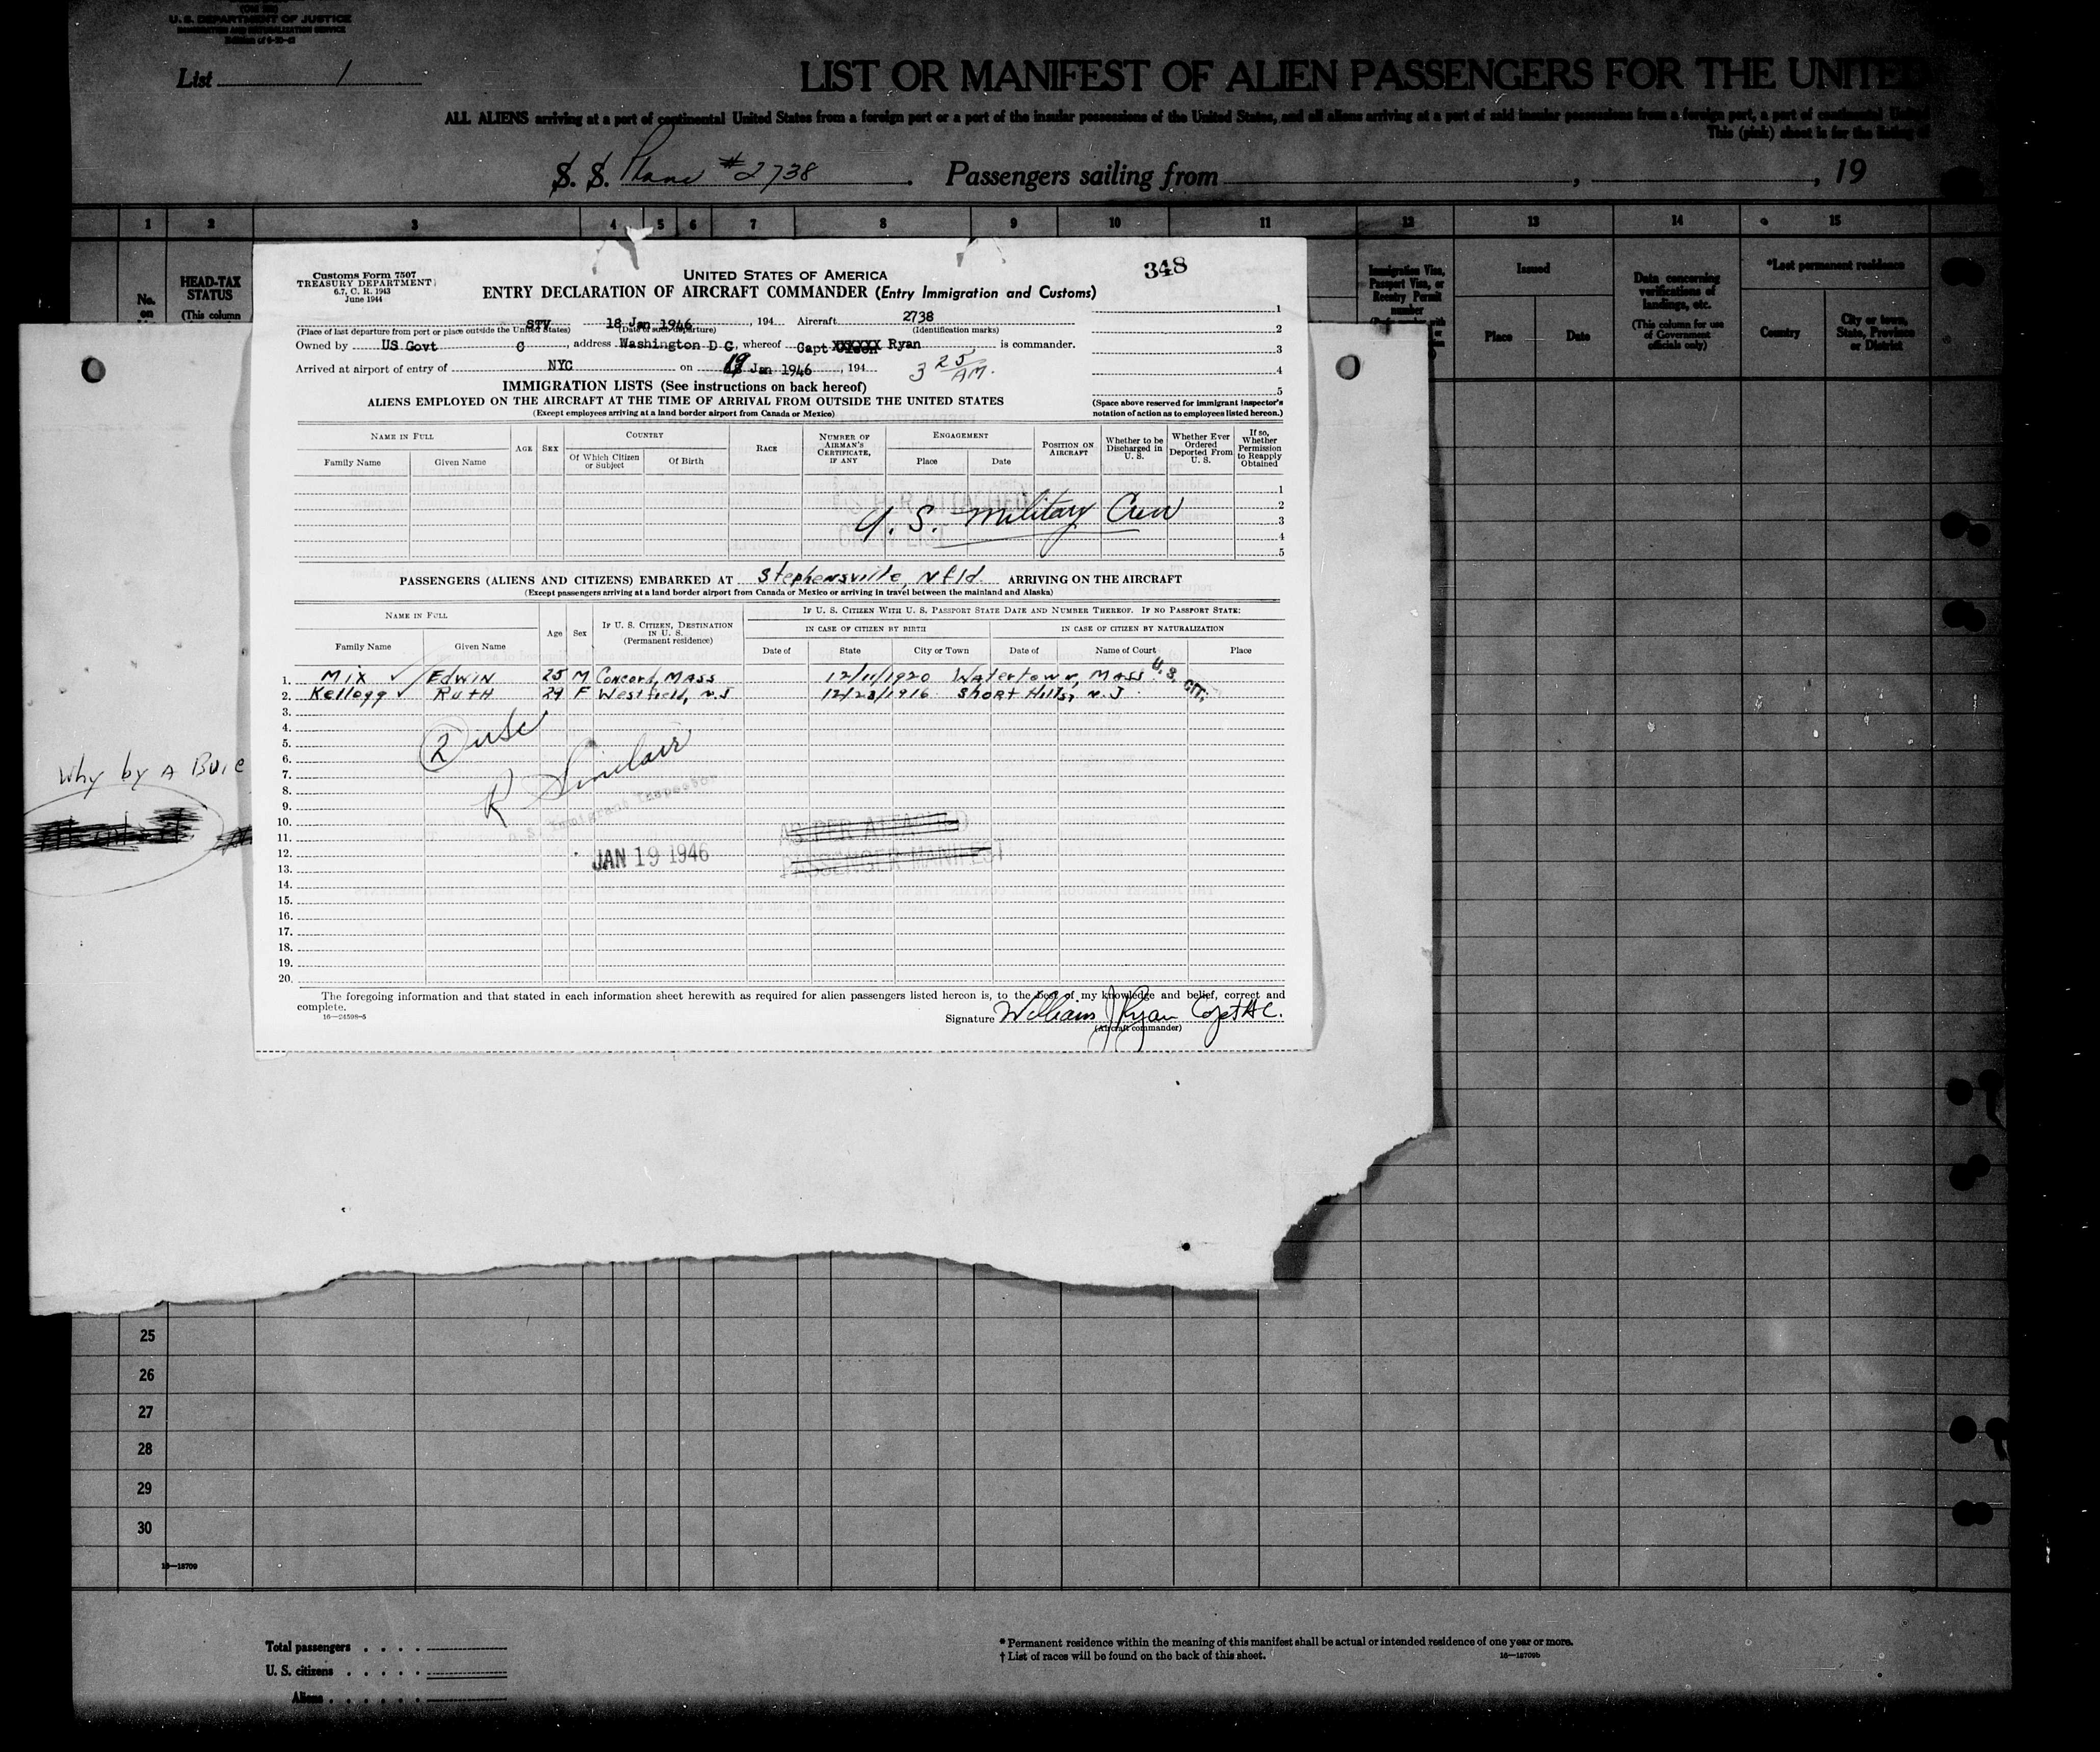 U. S. DEPARTMENT OF JUSTICE
IMMIGRATION AND NATURALIZATION SERVICE
List 1
LIST OR MANIFEST OF ALIEN PASSENGERS FOR THE UNITED
ALL ALIENS arriving at a port of continental United States from a foreign port or a port of the insular possessions of the United States, and all aliens arriving at a port of said insular possessions from a foreign port, a port of continental United
This (pink) sheet is for the listing of
S. S. Plane #2738 . Passengers sailing from , , 19
1 2 3 4 5 6 7 8 9 10 11 12 13 14 15
No. on
HEAD-TAX STATUS
(This column
Immigration Visa, Passport Visa, or Reentry Permit number
Issued
Place Date
Data concerning verifications of landings, etc.
(This column for use of Government officials only)
*Last permanent residence
Country
City or town, State, Province or District
Customs Form 7507
TREASURY DEPARTMENT
6.7, C. R. 1943
June 1944
UNITED STATES OF AMERICA
348
ENTRY DECLARATION OF AIRCRAFT COMMANDER (Entry Immigration and Customs)
STV 18 Jan 1946, 194 Aircraft 2738
(Place of last departure from port or place outside the United States) (Date of such departure) (Identification marks)
Owned by US Govt , address Washington D C, whereof Capt Ryan is commander.
Arrived at airport of entry of NYC on 19 Jan 1946, 194 3 25 AM.
1
2
3
4
5
(Space above reserved for immigrant Inspector's notation of action as to employees listed hereon.)
IMMIGRATION LISTS (See instructions on back hereof)
ALIENS EMPLOYED ON THE AIRCRAFT AT THE TIME OF ARRIVAL FROM OUTSIDE THE UNITED STATES
(Except employees arriving at a land border airport from Canada or Mexico)
NAME IN FULL
Family Name Given Name
AGE SEX
COUNTRY
Of Which Citizen or Subject Of Birth
RACE
NUMBER OF AIRMAN'S CERTIFICATE, IF ANY
ENGAGEMENT
Place Date
POSITION ON AIRCRAFT
Whether to be Discharged in U. S.
Whether Ever Ordered Deported From U. S.
If so, Whether Permission to Reapply Obtained
1
2
3
4
5
U. S. Military Crew
PASSENGERS (ALIENS AND CITIZENS) EMBARKED AT Stephensville, Nfld. ARRIVING ON THE AIRCRAFT
(Except passengers arriving at a land border airport from Canada or Mexico or arriving in travel between the mainland and Alaska)
NAME IN FULL
Family Name Given Name
Age Sex
IF U. S. CITIZEN, DESTINATION IN U. S.
(Permanent residence)
IF U. S. CITIZEN WITH U. S. PASSPORT STATE DATE AND NUMBER THEREOF. IF NO PASSPORT STATE:
IN CASE OF CITIZEN BY BIRTH IN CASE OF CITIZEN BY NATURALIZATION
Date of State City or Town Date of Name of Court Place
1. Mix ✓ Edwin 25 M Concord, Mass 12/11/1920 Watertown, Mass U.S. CIT.
2. Kellogg ✓ Ruth 29 F Westfield, N.J 12/23/1916 Short Hills, N.J.
3.
4.
5.
6.
7.
8.
9.
10.
11.
12.
13.
14.
15.
16.
17.
18.
19.
20.
2 USC
R Sinclair
U.S. Immigrant Inspector
JAN 19 1946
AS PER ATTACHED
PASSENGER MANIFEST
The foregoing information and that stated in each information sheet herewith as required for alien passengers listed hereon is, to the best of my knowledge and belief, correct and complete.
16—24598-5
Signature William J Ryan Capt A.C.
(Aircraft commander)
Why by A
25
26
27
28
29
30
16—18709
Total passengers . . . .
U. S. citizens . . . . .
Aliens . . . . . .
* Permanent residence within the meaning of this manifest shall be actual or intended residence of one year or more.
† List of races will be found on the back of this sheet.
16—18709b